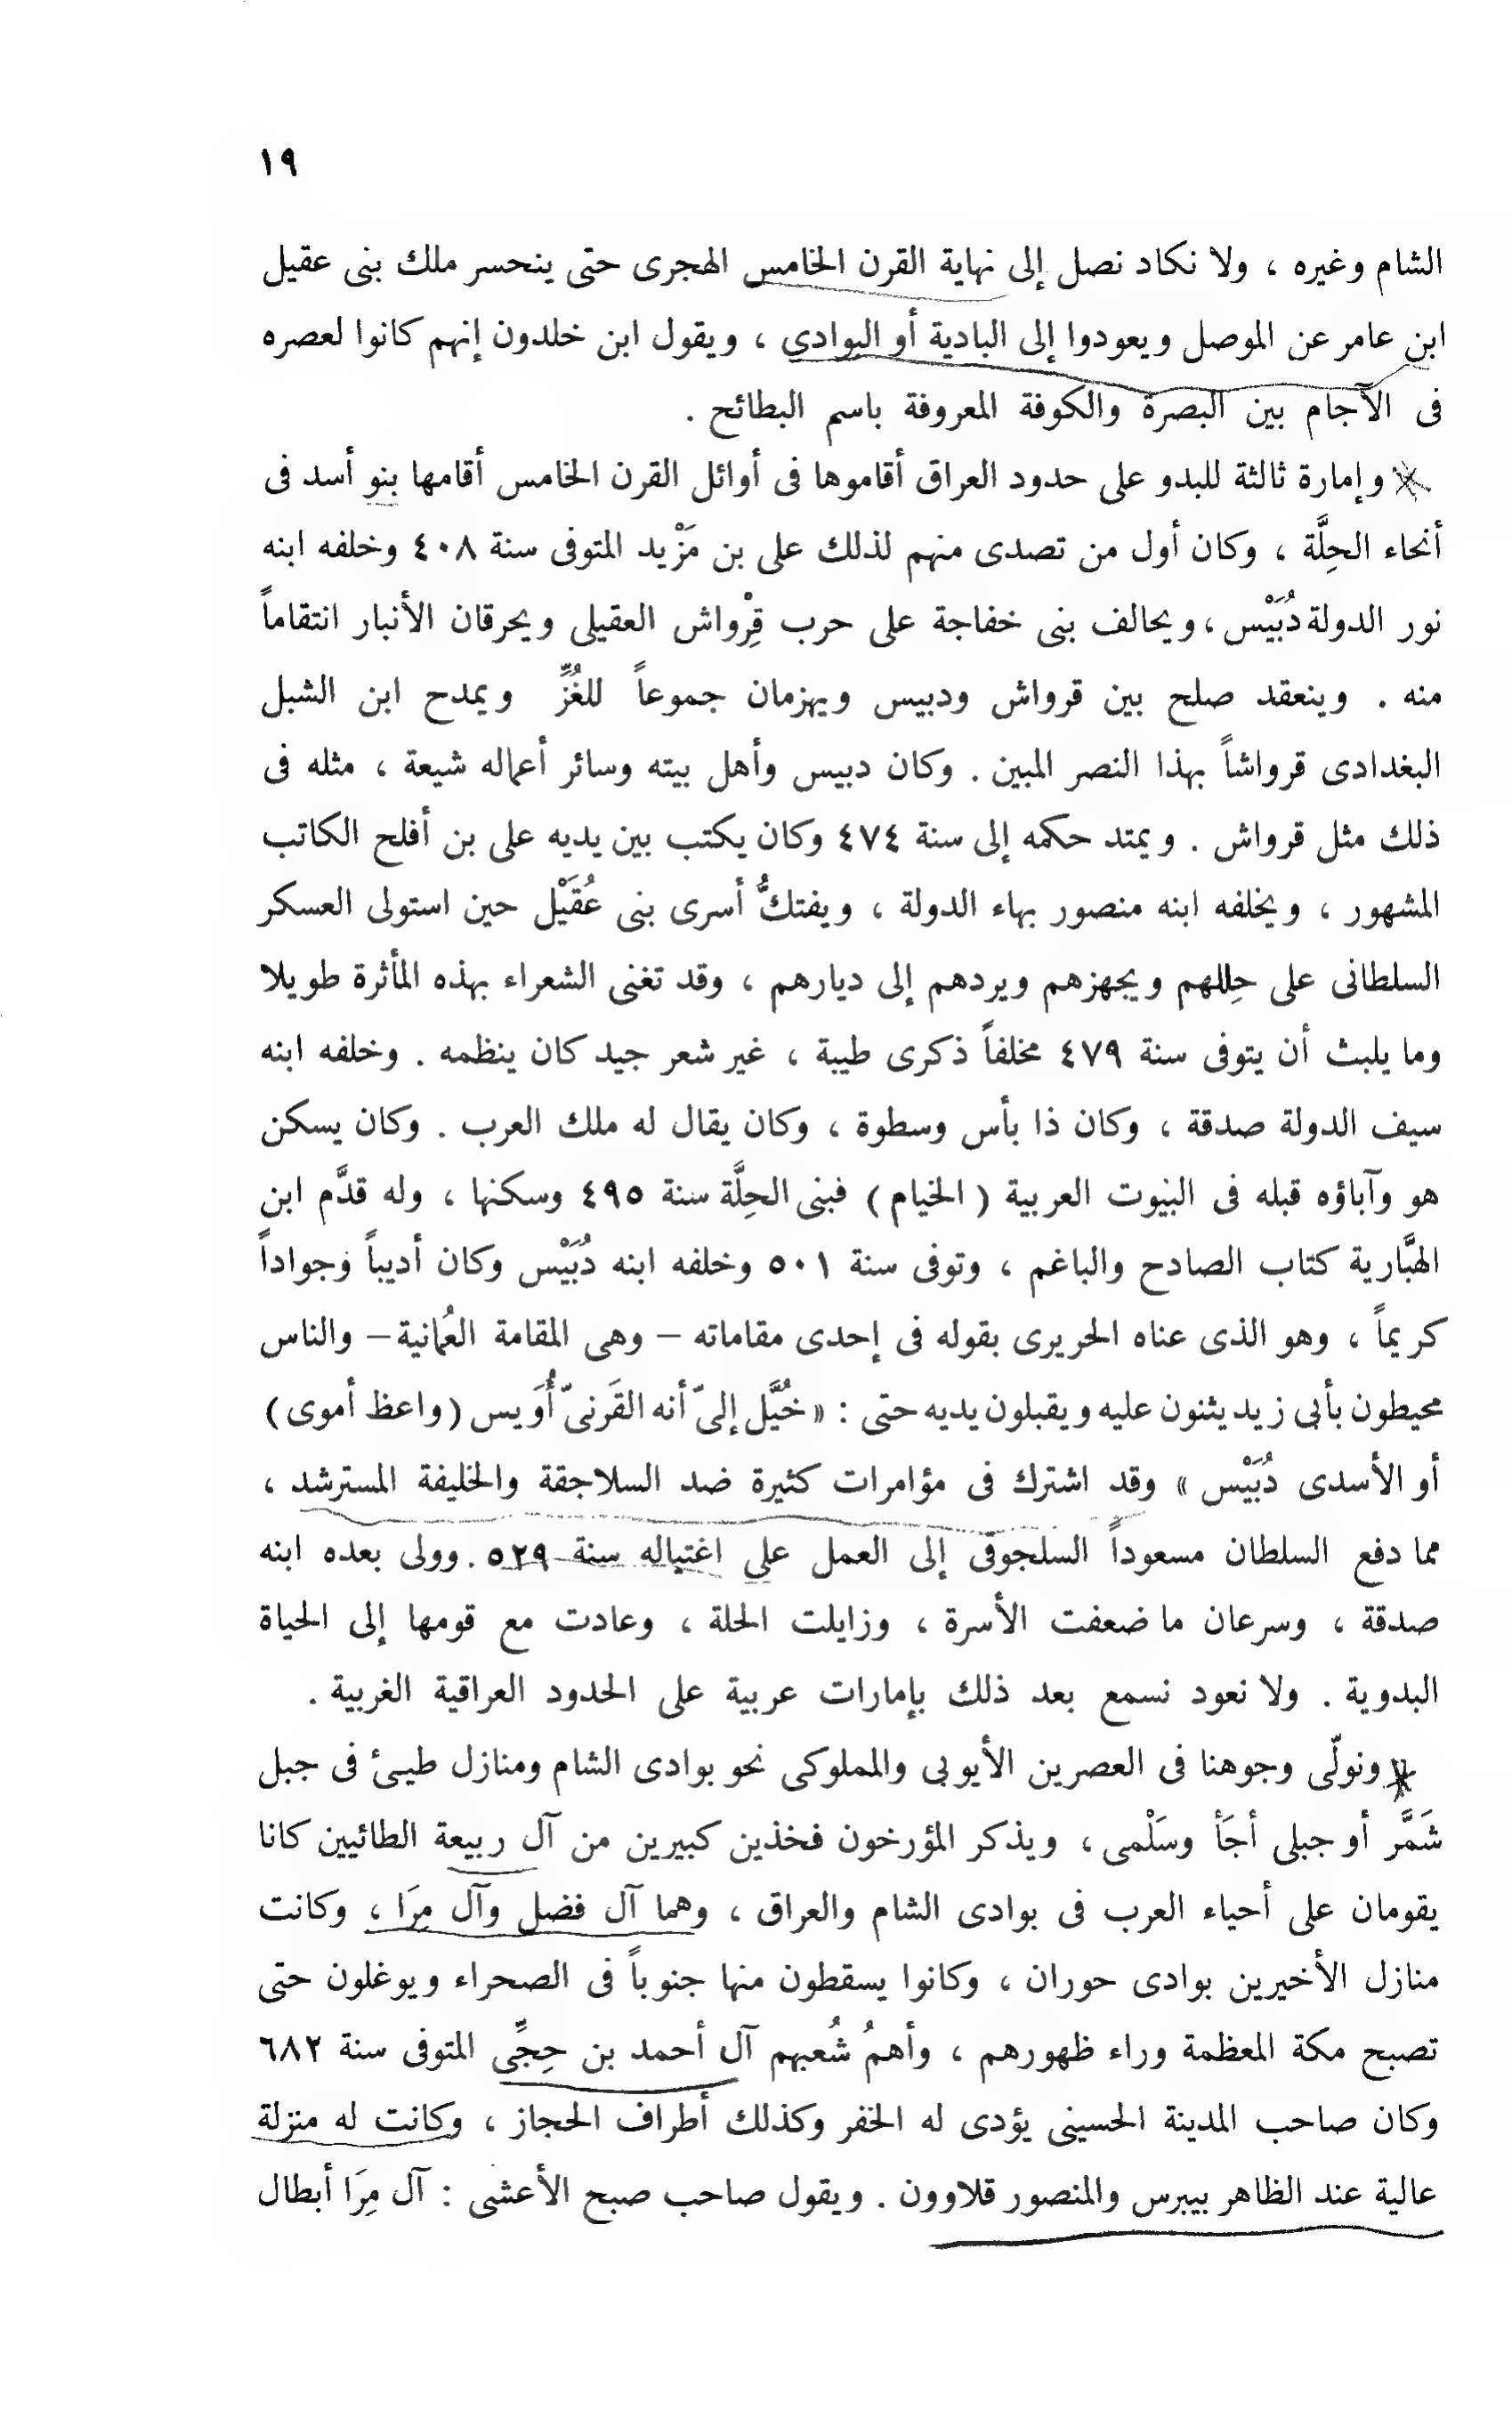 ١٩
الشام وغيره ، ولا نكاد نصل إلى نهاية القرن الخامس الهجرى حتى ينحسر ملك بنى عقيل
ابن عامر عن الموصل ويعودوا إلى البادية أو البوادى ، ويقول ابن خلدون إنهم كانوا لعصره
فى الآجام بين البصرة والكوفة المعروفة باسم البطائح .
وإمارة ثالثة للبدو على حدود العراق أقاموها فى أوائل القرن الخامس أقامها بنو أسد فى
أنحاء الحِلَّة ، وكان أول من تصدى منهم لذلك على بن مَزْيد المتوفى سنة ٤٠٨ وخلفه ابنه
نور الدولة دُبَيْس ، ويحالف بنى خفاجة على حرب قِرْواش العقيلى ويحرقان الأنبار انتقاماً
منه . وينعقد صلح بين قرواش ودبيس ويهزمان جموعاً للغُزِّ ويمدح ابن الشبل
البغدادى قرواشاً بهذا النصر المبين . وكان دبيس وأهل بيته وسائر أعماله شيعة ، مثله فى
ذلك مثل قرواش . ويمتد حكمه إلى سنة ٤٧٤ وكان يكتب بين يديه على بن أفلح الكاتب
المشهور ، ويخلفه ابنه منصور بهاء الدولة ، ويفتكُّ أسرى بنى عُقَيْل حين استولى العسكر
السلطانى على حِللهم ويجهزهم ويردهم إلى ديارهم ، وقد تغنى الشعراء بهذه المأثرة طويلا
وما يلبث أن يتوفى سنة ٤٧٩ مخلفاً ذكرى طيبة ، غير شعر جيد كان ينظمه . وخلفه ابنه
سيف الدولة صدقة ، وكان ذا بأس وسطوة ، وكان يقال له ملك العرب . وكان يسكن
هو وآباؤه قبله فى البيوت العربية ( الخيام ) فبنى الحِلَّة سنة ٤٩٥ وسكنها ، وله قدَّم ابن
الهبَّارية كتاب الصادح والباغم ، وتوفى سنة ٥٠١ وخلفه ابنه دُبَيْس وكان أديباً وجواداً
كريماً ، وهو الذى عناه الحريرى بقوله فى إحدى مقاماته – وهى المقامة العُمانية – والناس
محيطون بأبى زيد يثنون عليه ويقبلون يديه حتى : « خُيَّل إلىّ أنه القَرنىّ أُوَيس (واعظ أموى)
أو الأسدى دُبَيْس » وقد اشترك فى مؤامرات كثيرة ضد السلاجقة والخليفة المسترشد ،
مما دفع السلطان مسعوداً السلجوقى إلى العمل على اغتياله سنة ٥٢٩ . وولى بعده ابنه
صدقة ، وسرعان ما ضعفت الأسرة ، وزايلت الحلة ، وعادت مع قومها إلى الحياة
البدوية . ولا نعود نسمع بعد ذلك بإمارات عربية على الحدود العراقية الغربية .
ونولّى وجوهنا فى العصرين الأيوبى والمملوكى نحو بوادى الشام ومنازل طيئ فى جبل
شَمَّر أو جبلى أجَأ وسَلْمى ، ويذكر المؤرخون فخذين كبيرين من آل ربيعة الطائيين كانا
يقومان على أحياء العرب فى بوادى الشام والعراق ، وهما آل فضل وآل مِرَا ، وكانت
منازل الأخيرين بوادى حوران ، وكانوا يسقطون منها جنوباً فى الصحراء ويوغلون حتى
تصبح مكة المعظمة وراء ظهورهم ، وأهمُ شُعبهم آل أحمد بن حِجِّى المتوفى سنة ٦٨٢
وكان صاحب المدينة الحسينى يؤدى له الخفر وكذلك أطراف الحجاز ، وكانت له منزلة
عالية عند الظاهر بيبرس والمنصور قلاوون . ويقول صاحب صبح الأعشى : آل مِرَا أبطال